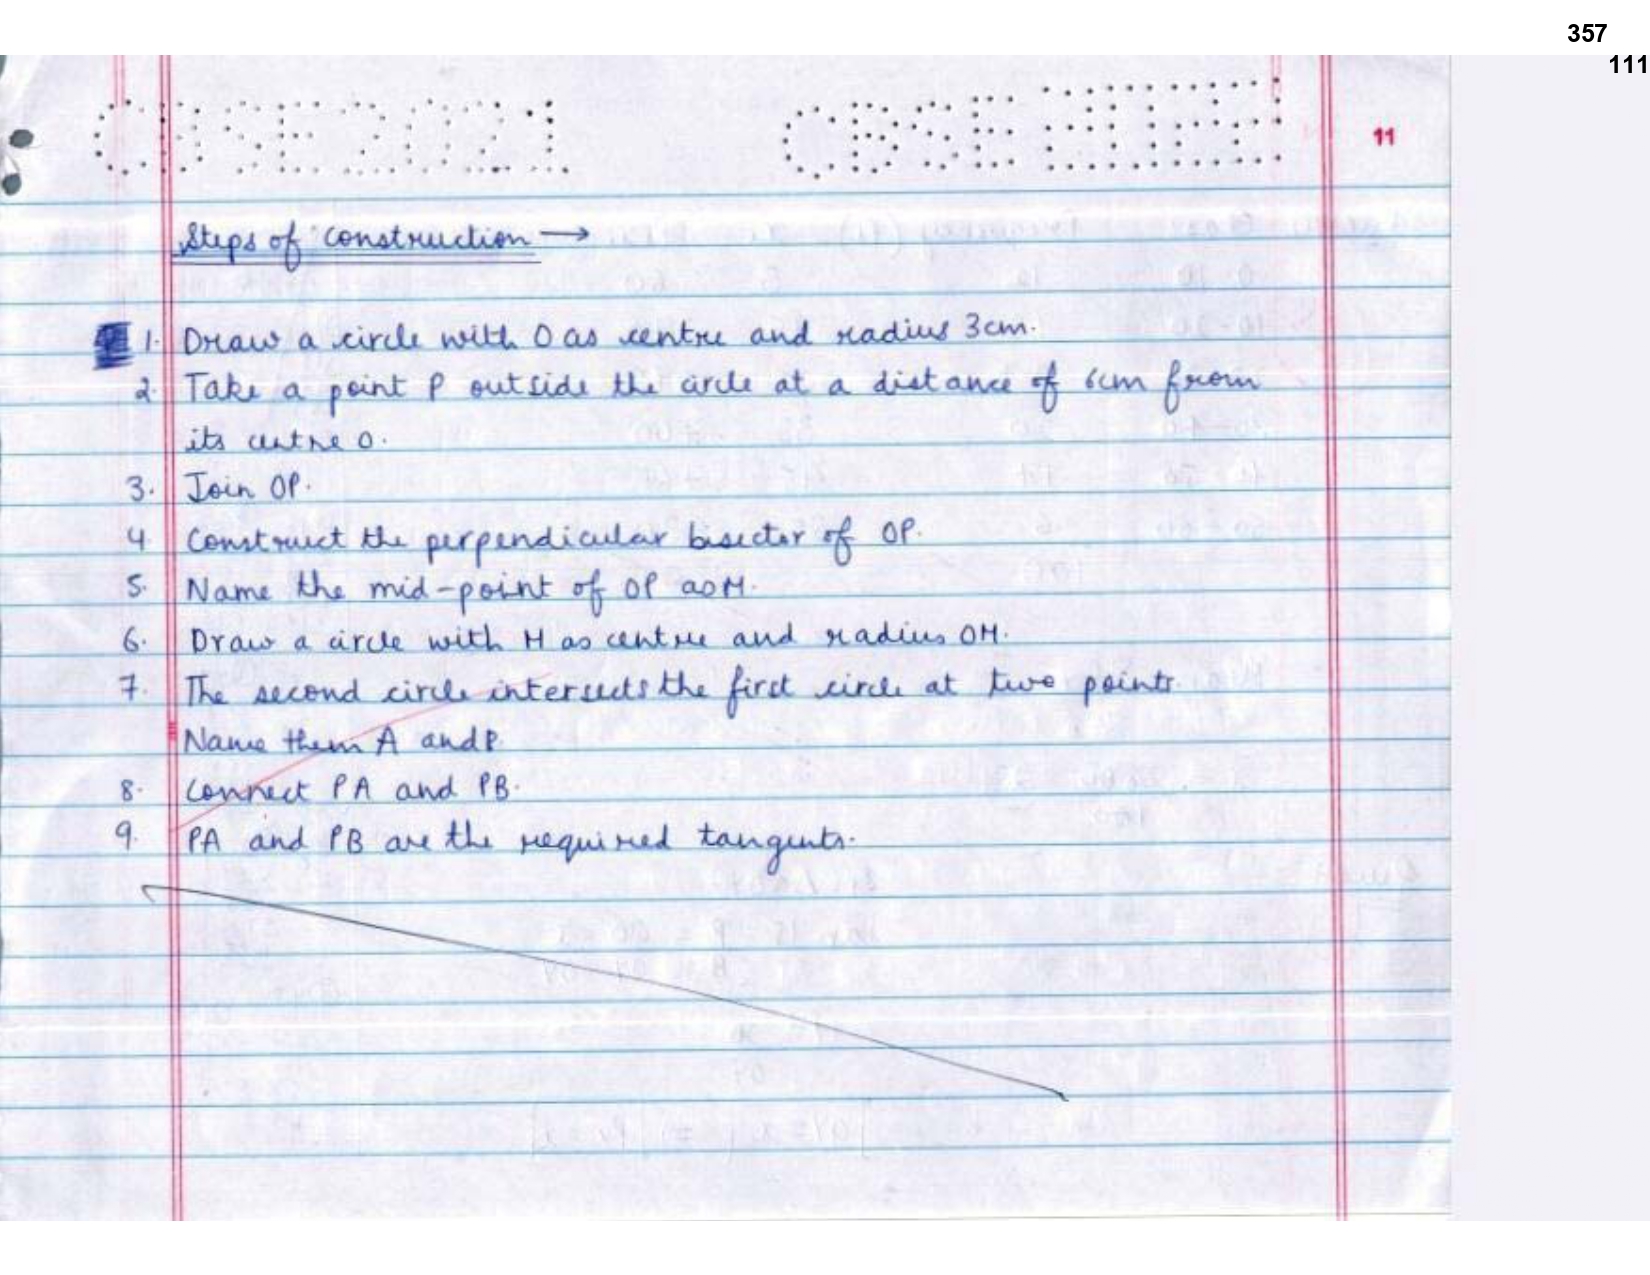 357
111
CBSE 2021 CBSE
11
Steps of construction →
1. Draw a circle with O as centre and radius 3cm.
2. Take a point P outside the circle at a distance of 6cm from
its centre O.
3. Join OP.
4. Construct the perpendicular bisector of OP.
5. Name the mid-point of OP as M.
6. Draw a circle with M as centre and radius OM.
7. The second circle intersects the first circle at two points.
Name them A and P.
8. Connect PA and PB.
9. PA and PB are the required tangents.